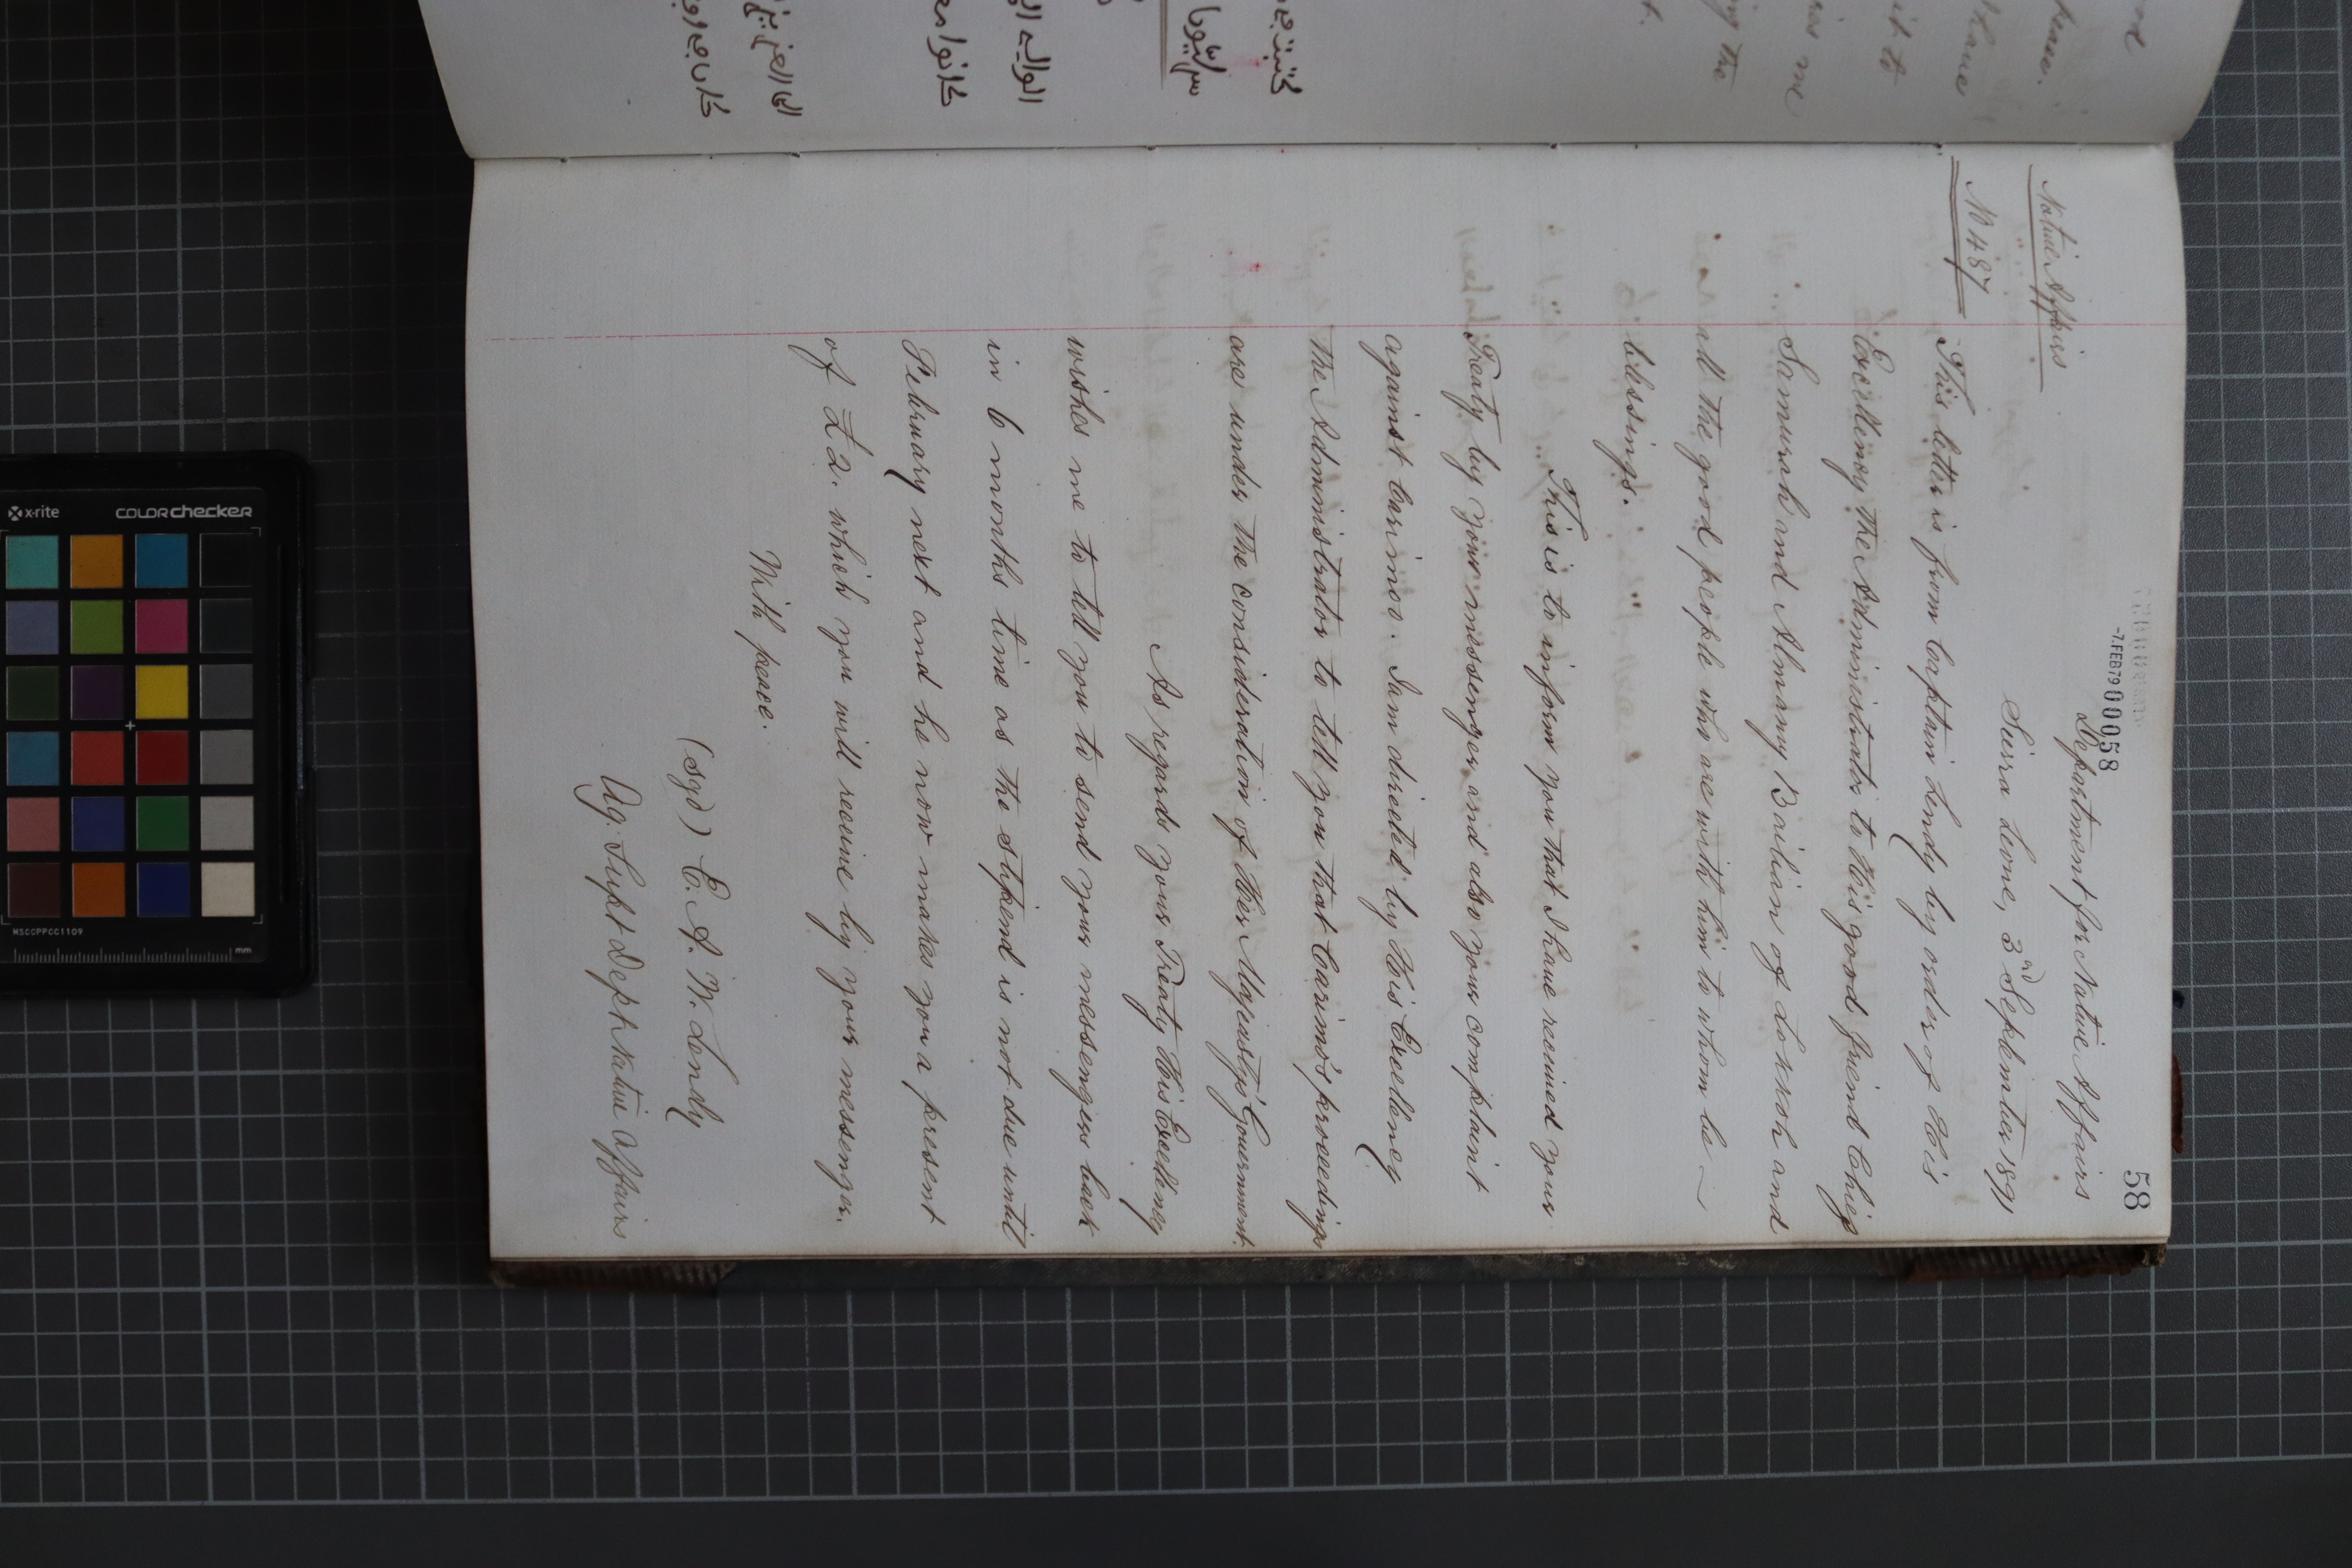 58
-7.FEB79 00058
Department for Native Affairs
Sierra Leone, 3rd September 1891
Native Affairs
No 487
This letter is from Captain Lendy by order of His
Excellency the Administrator to His good friend Chief
Samurah and Almamy Bailian of Lokkoh and
all the good people who are with him to whom be
blessings.
This is to inform you that I have received your
Treaty by your messenger and also your complaint
against Carimoo. I am directed by His Excellency
the Administrator to tell you that Carimo's proceedings
are under the consideration of Her Majesty's Government.
As regards your Treaty His Excellency
wishes me to tell you to send your messengers back
in 6 months time as the stipend is not due until
February next and he now makes you a present
of £2. which you will receive by your messenger.
With peace.
(sgd) E. A. W. Lendy
Ag. Supt Dept Native Affairs
it to
me
ing the
x-rite
colorchecker
MSCCPPCC1109
mm